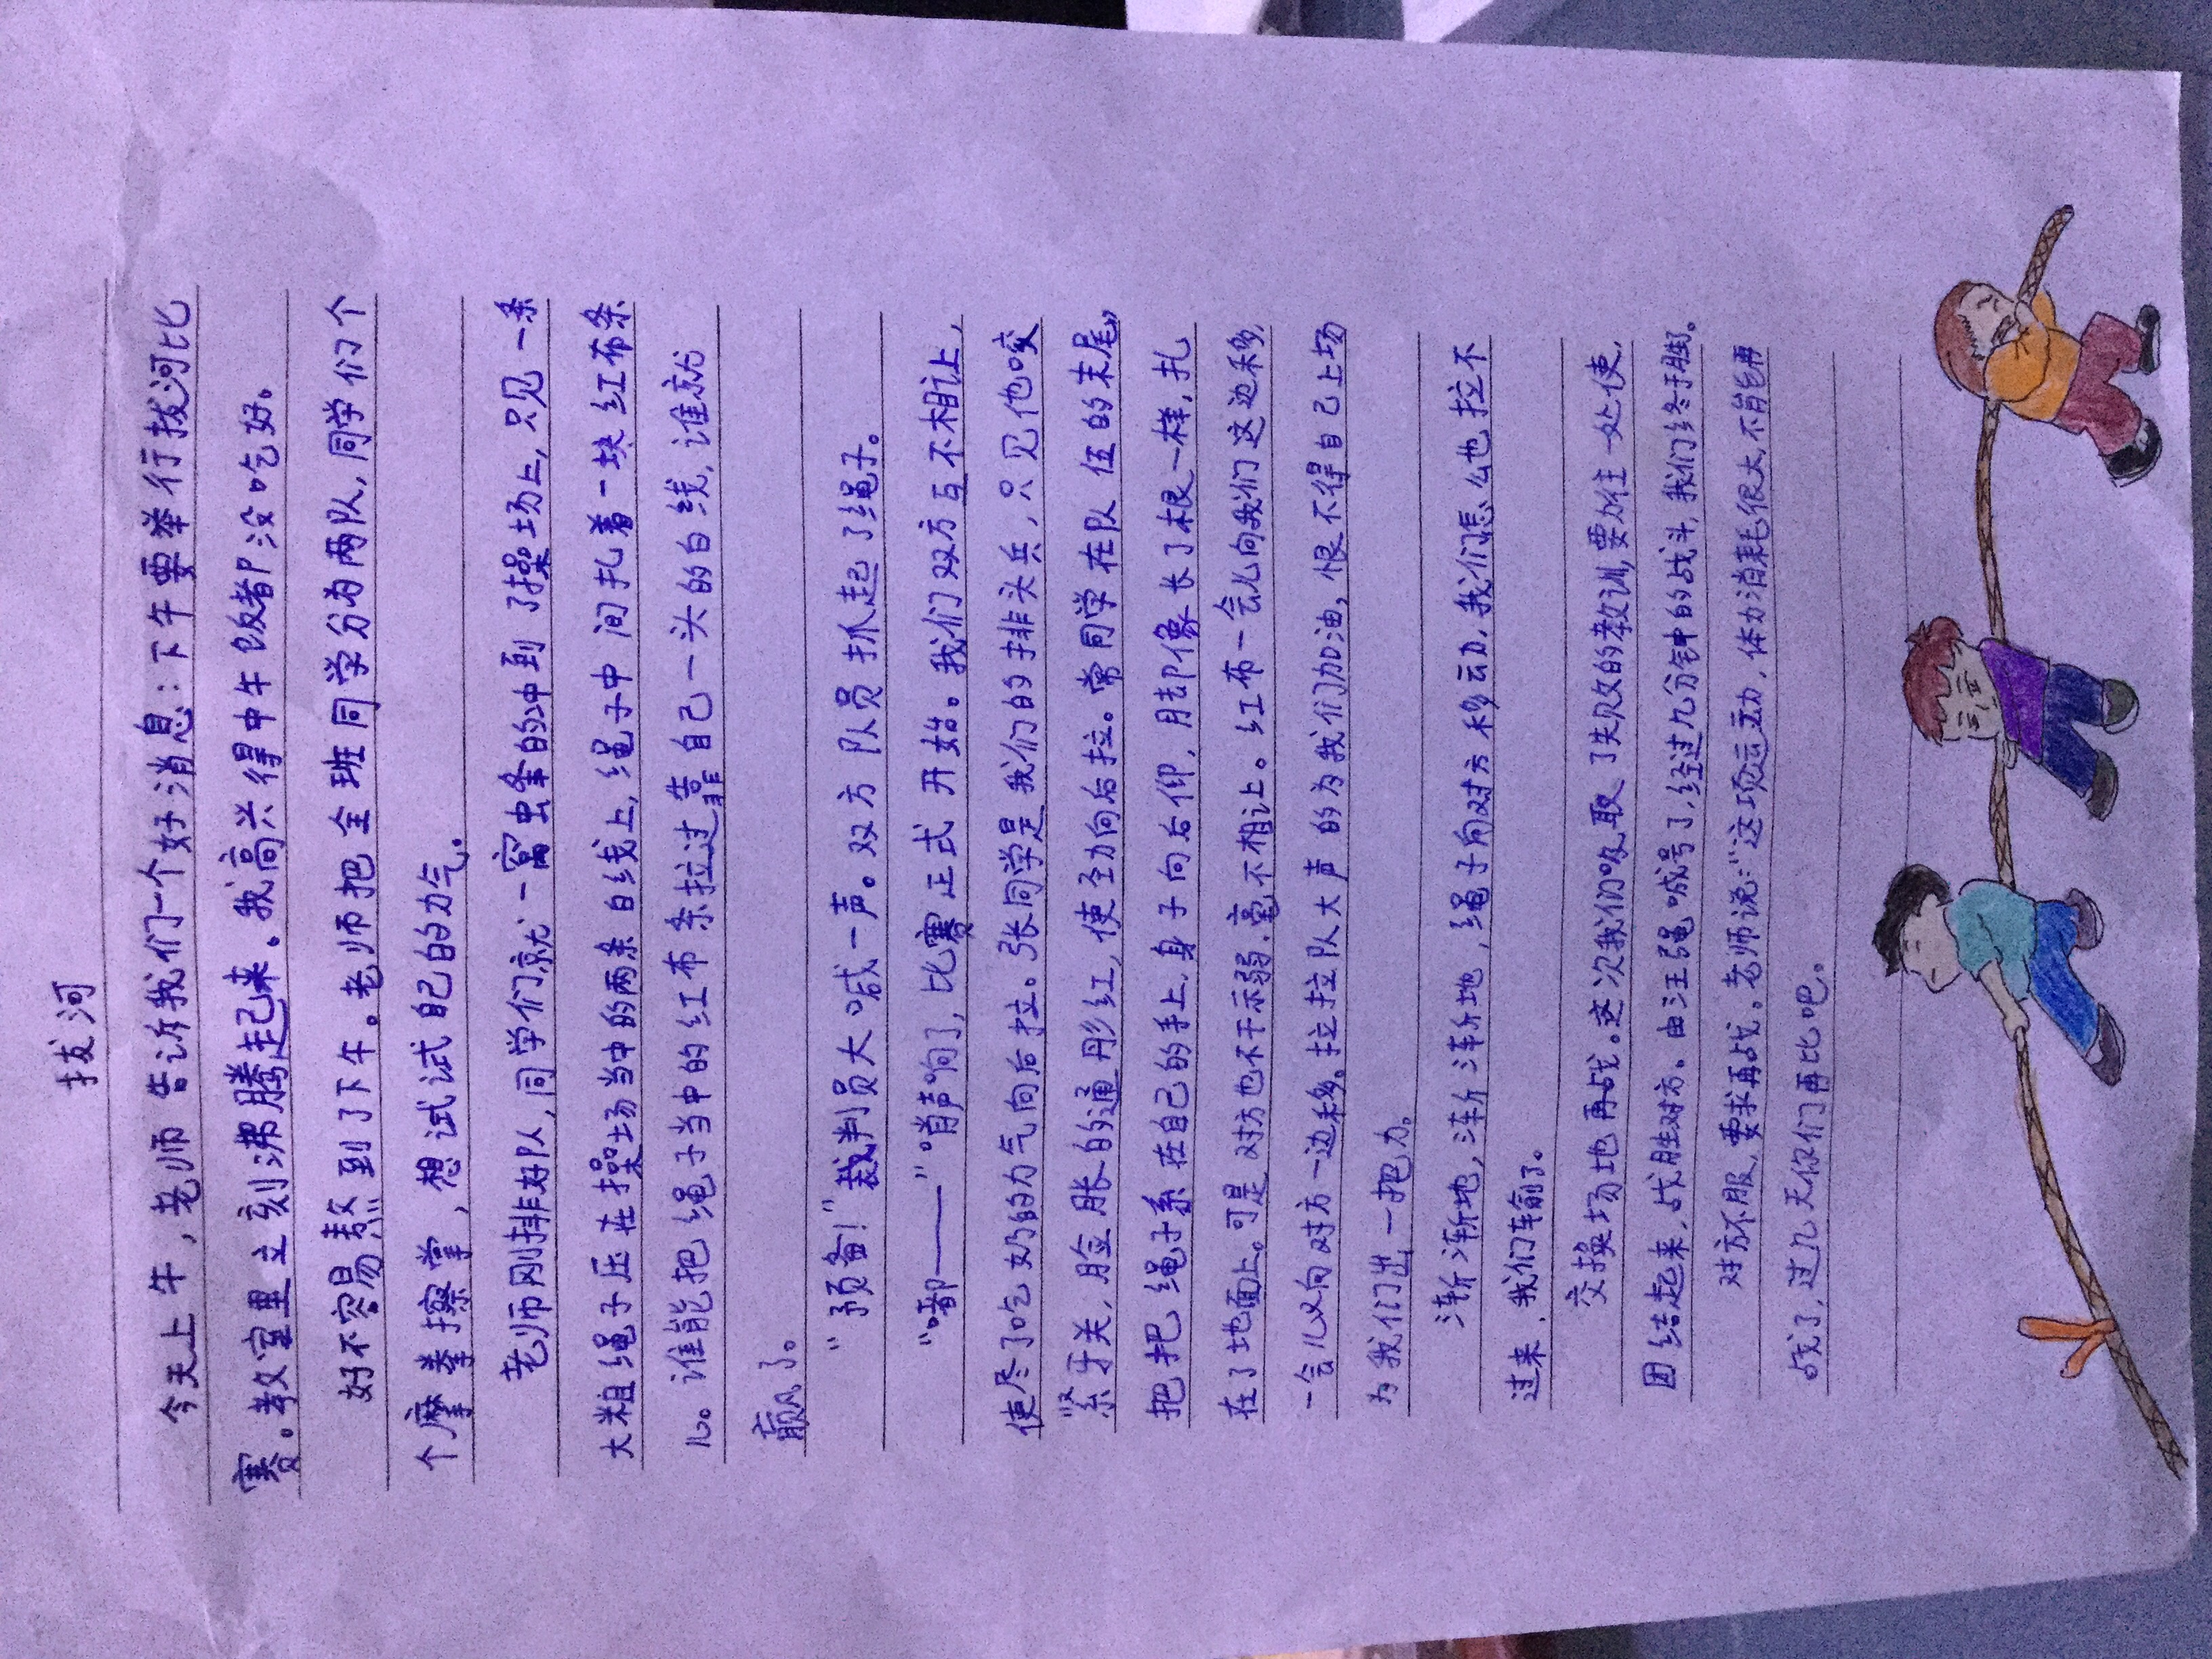 拔河
今天上午，老师告诉我们一个好消息：下午要举行拔河比
赛。教室里立刻沸腾起来。我高兴得中午饭都没吃好。
好不容易熬到了下午。老师把全班同学分为两队，同学们个
个摩拳擦掌，想试试自己的力气。
老师刚排好队，同学们就一窝虫峰的冲到了操场上，只见一条
大粗绳子压在操场当中的两条白线上，绳子中间扎着一块红布条
儿。谁能把绳子当中的红布条拉过靠自己一头的白线，谁就
赢了。
“预备！”裁判员大喊一声。双方队员抓起了绳子。
“嘟——”哨声响了，比赛正式开始。我们双方互不相让，
使尽了吃奶的力气向后拉。张同学是我们的排头兵，只见他咬
紧牙关，脸胀的通彤红，使全力向后拉。常同学在队伍的末尾，
把把绳子系在自己的手上，身子向后仰，脚却像长了根一样，扎
在了地面上。可是对方也不干示弱，毫不相让。红布一会儿向我们这边移，
一会儿又向对方一边移。拉拉队大声的为我们加油，恨不得自己上场
为我们出一把力。
渐渐地，渐渐地，绳子向对方移动，我们怎么也拉不
过来，我们输了。
交换场地再战。这次我们吸取了失败的教训，要加往一处使，
团结起来，战胜对方。由汪强喊号了，经过九分钟的战斗，我们终于胜了。
对方不服，要求再战。老师说：“这项运动，体力消耗很大，不能再
战了，过几天你们再比吧。